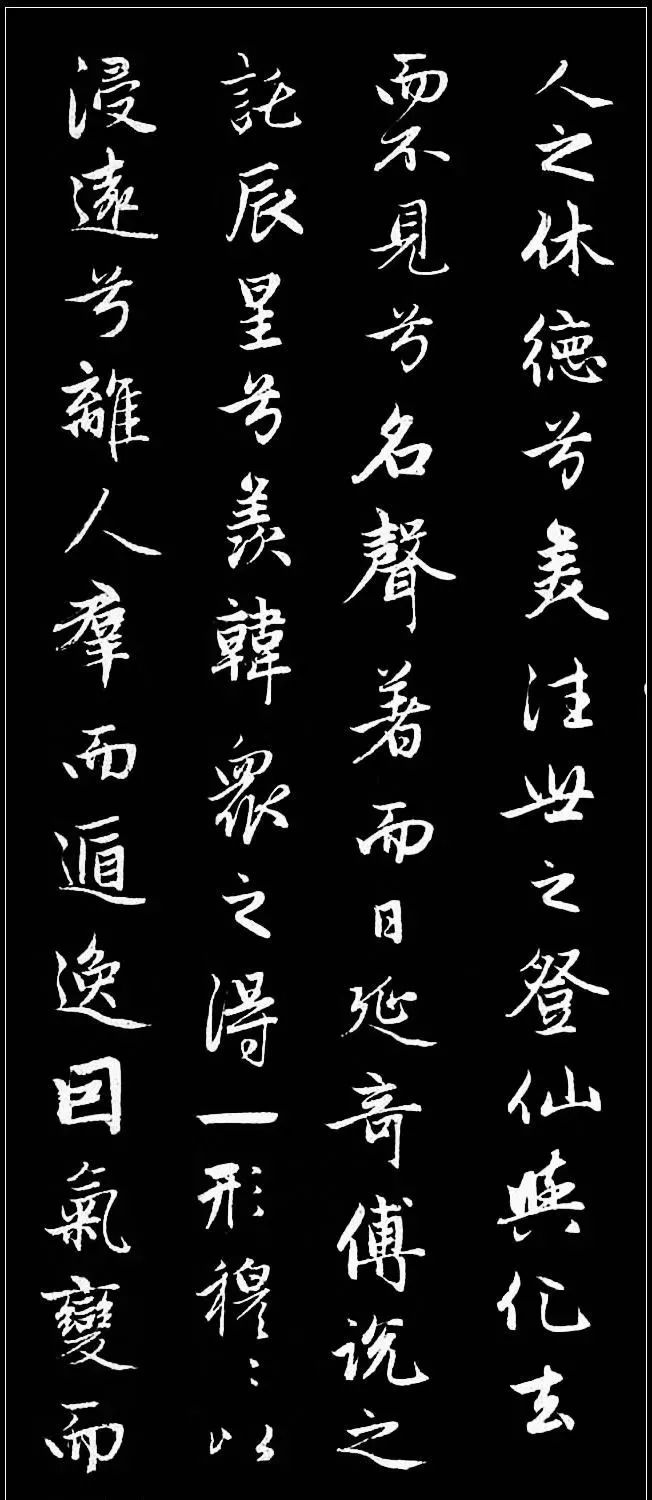 人之休德兮美往世之登仙與化去
而不見兮名聲著而日延奇傅說之
託辰星兮羨韓眾之得一形穆〻以
浸遠兮離人羣而遁逸因氣變而